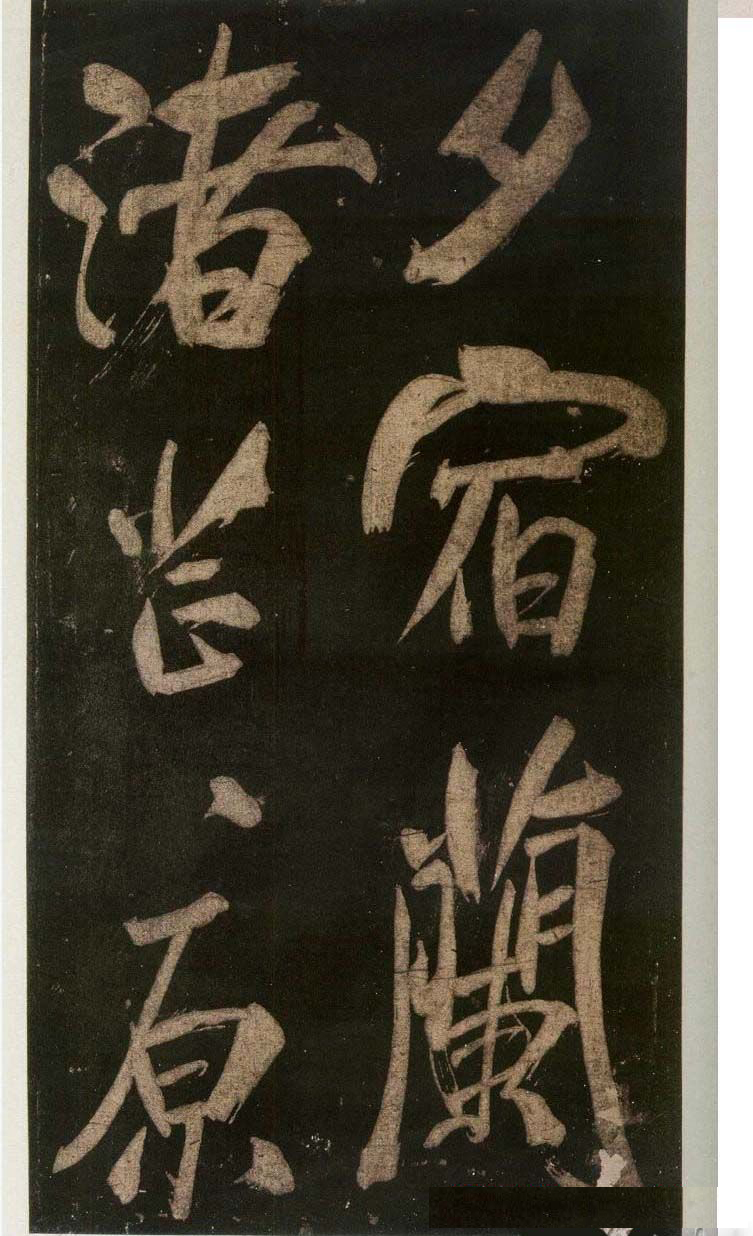 夕宿蘭
渚芒、原